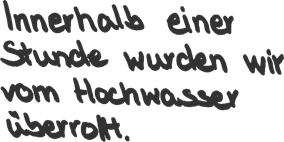 Innerhalb einer
Stunde wurden wir
vom Hochwasser
überrollt.